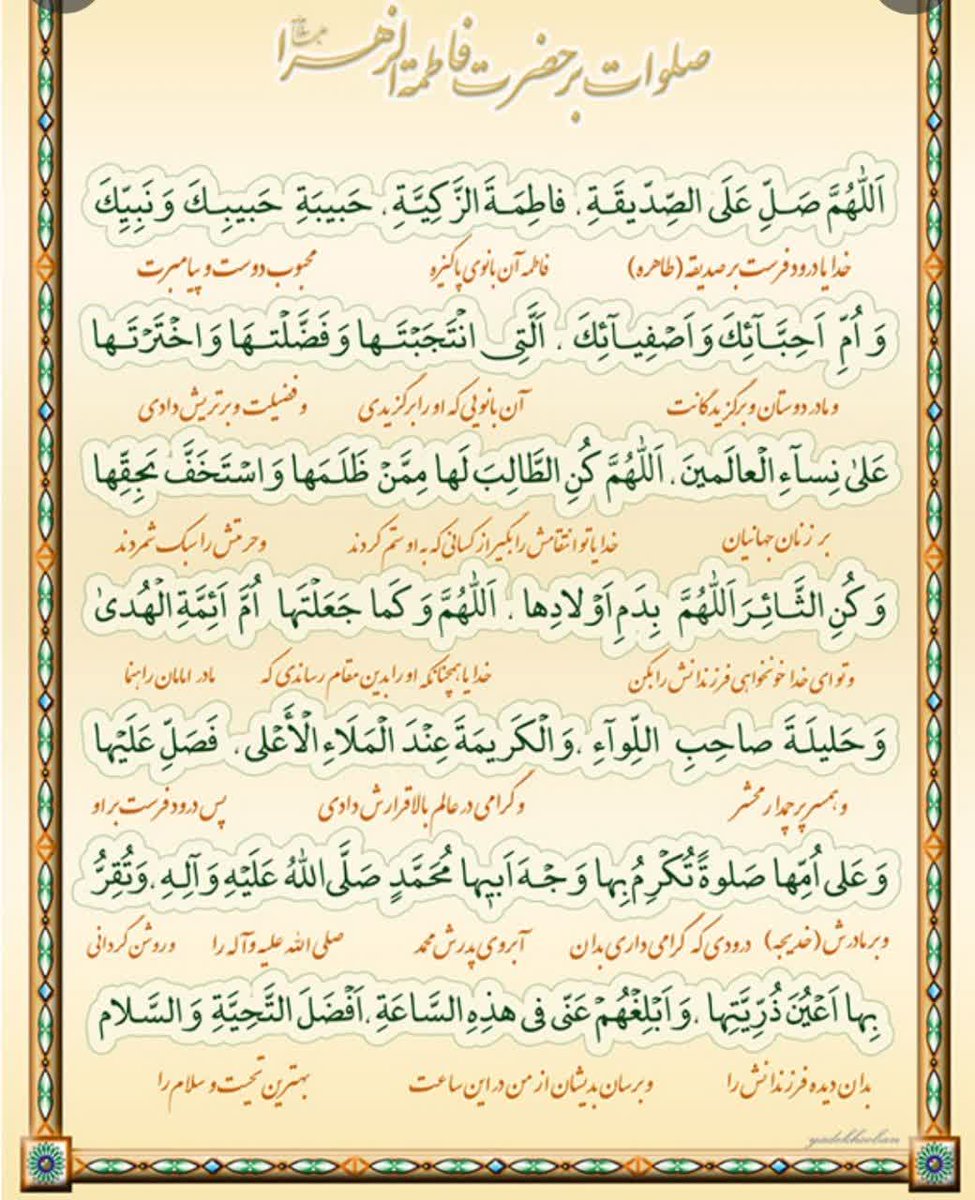 صلوات بر حضرت فاطمة الزهرا
اَللّٰهُمَّ صَلِّ عَلَى الصِّدّيقَةِ، فاطِمَةَ الزَّكِيَّةِ، حَبيبَةِ حَبيبِكَ وَ نَبِيِّكَ
خدایا درود فرست بر صدیقه (طاهره) فاطمه آن بانوی پاکیزه محبوب دوست و پیامبرت
وَ اُمِّ اَحِبَّآئِكَ وَ اَصْفِيآئِكَ ، اَلَّتِى انْتَجَبْتَها وَ فَضَّلْتَها وَ اخْتَرْتَها
و مادر دوستان و برگزیدگانت آن بانویی که او را برگزیدی و فضیلت و برتریش دادی
عَلىٰ نِسآءِ الْعالَمينَ، اَللّٰهُمَّ كُنِ الطَّالِبَ لَها مِمَّنْ ظَلَمَها وَ اسْتَخَفَّ بِحَقِّها
بر زنان جهانیان خدایا تو انتقامش را بگیر از کسانی که به او ستم کردند و حرمتش را سبک شمردند
وَ كُنِ الثَّائِرَ اَللّٰهُمَّ بِدَمِ اَوْلادِها ، اَللّٰهُمَّ وَ كَما جَعَلْتَها اُمَّ اَئِمَّةِ الْهُدىٰ
و تو ای خدا خونخواهی فرزندانش را بکن خدایا همچنانکه او را بدین مقام رساندی که مادر امامان راهنما
وَ حَليلَةَ صاحِبِ اللِّوآءِ ،وَ الْكَريمَةَ عِنْدَ الْمَلَاءِ الْأَعْلى، فَصَلِّ عَلَيْها
و همسر پرچمدار محشر و گرامی در عالم بالا قرارش دادی پس درود فرست بر او
وَ عَلى اُمِّها صَلوةً تُكْرِمُ بِها وَجْهَ اَبيها مُحَمَّدٍ صَلَّى اللّٰهُ عَلَيْهِ وَ آلِهِ ،وَ تُقِرُّ
و بر مادرش (خدیجه) درودی که گرامی داری بدان آبروی پدرش محمد صلی الله علیه و آله را و روشن گردانی
بِها اَعْيُنَ ذُرِّيَّتِها ،وَ اَبْلِغْهُمْ عَنّى فى هذِهِ السَّاعَةِ ،اَفْضَلَ التَّحِيَّةِ وَ السَّلام
بدان دیده فرزندانش را و برسان بدیشان از من در این ساعت بهترین تحیت و سلام را
yadekhooban